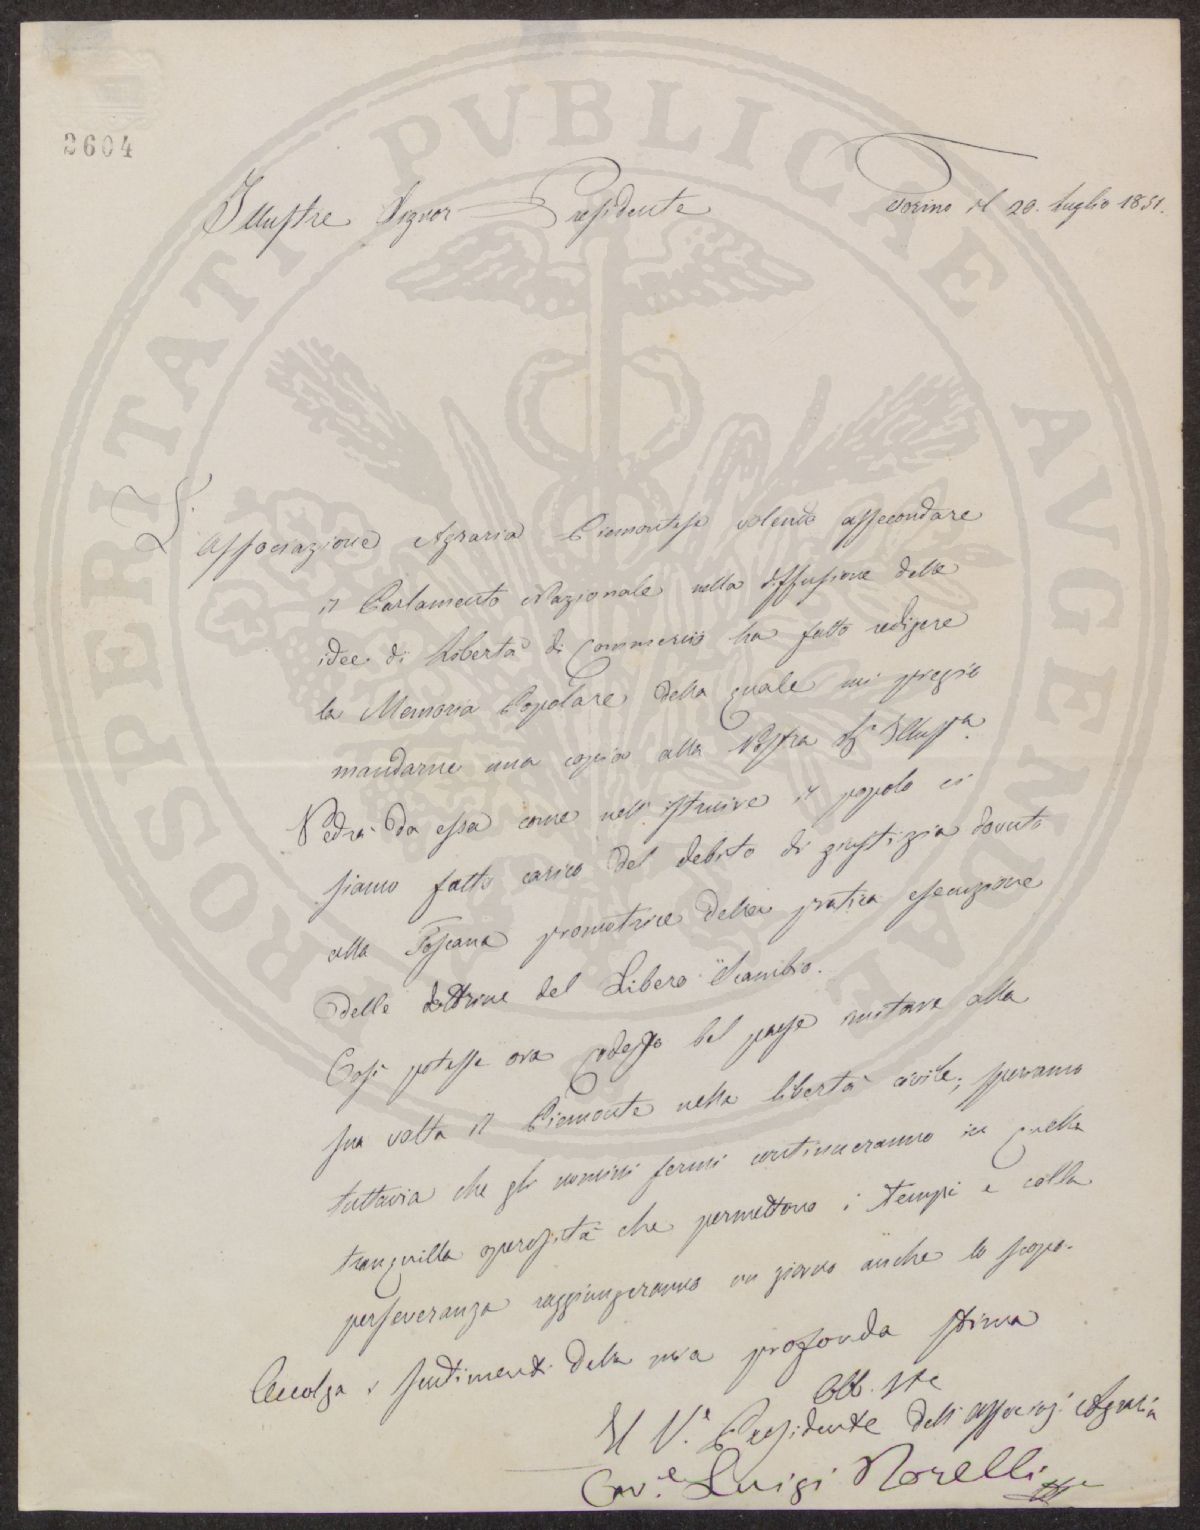 PROSPERITATI PVBLICAE AVGENDAE
2604
Torino il 20. Luglio 1851.
Illustre Signor Presidente
L'
Associazione Agraria Piemontese volendo assecondare
il Parlamento Nazionale nella diffusione delle
idee di libertà di Commercio ha fatto redigere
la Memoria Popolare della quale mi pregio
mandarne una copia alla Vostra Sg.a Illuss.a.
Vedrà da essa come nell'istruire il popolo ci
siamo fatto carico del debito di giustizia dovuto
alla Toscana promotrice della pratica esecuzione
delle dottrine del Libero Scambio.
Così potesse ora codesto bel paese imitare alla
sua volta il Piemonte nella libertà civile; speriamo
tuttavia che gli uomini fermi continueranno in quella
tranquilla operosità che permettono i tempi e colla
perseveranza raggiungeranno un giorno anche lo scopo.
Accolga i sentimenti della mia profonda stima
Obb.
Il V. Presidente dell'Associaz. Agraria
Cav.e Luigi Torelli